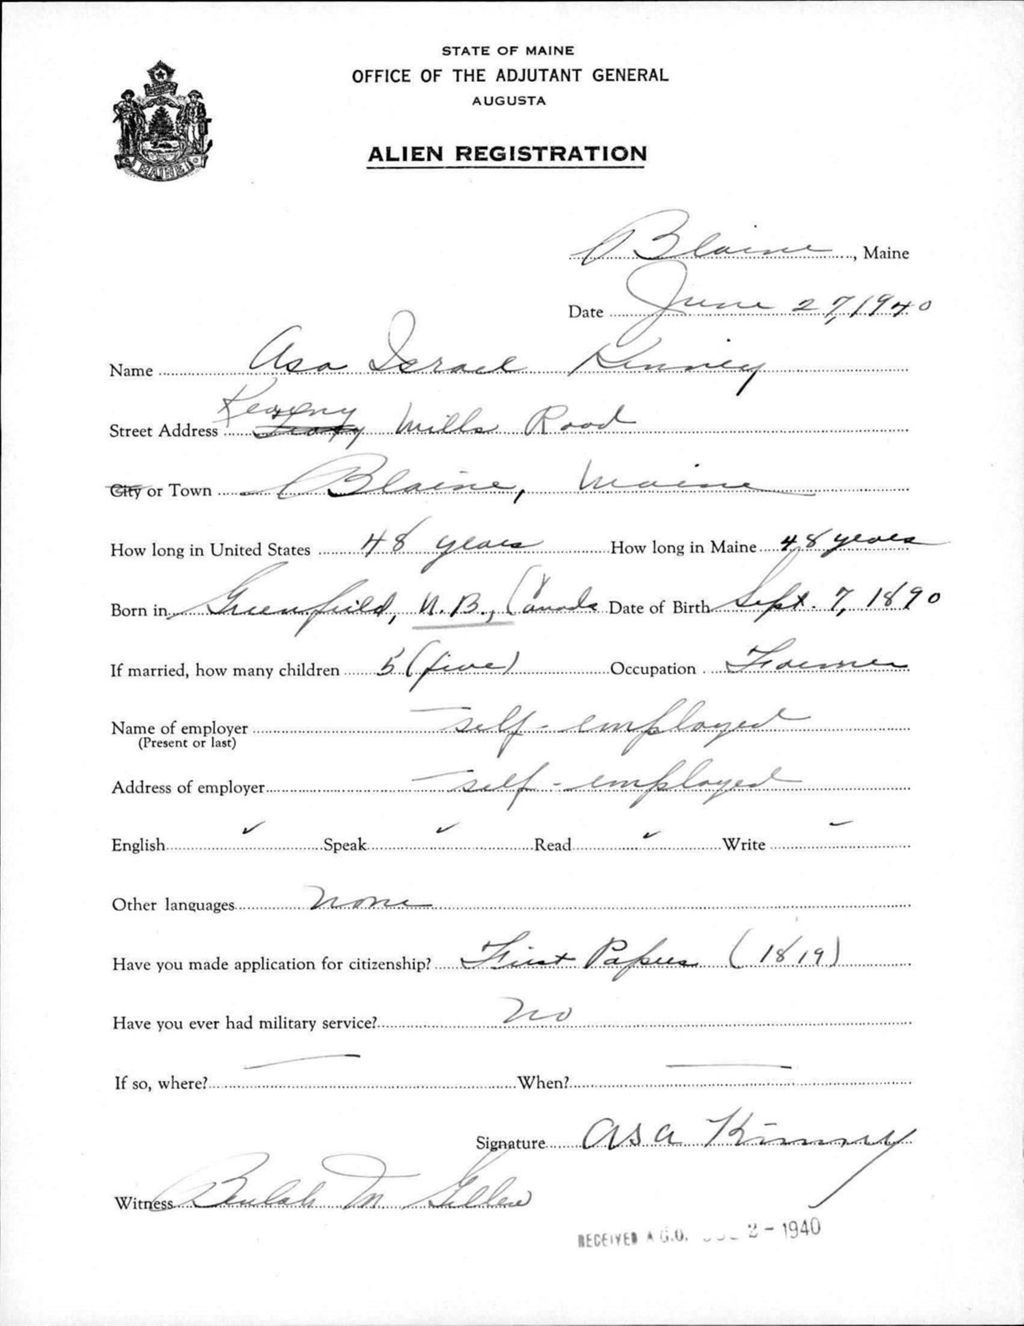 STATE OF MAINE
OFFICE OF THE ADJUTANT GENERAL
AUGUSTA
ALIEN REGISTRATION
MAINE
Blaine, Maine
Date June 27, 1940
Name Asa Israel Kinney
Street Address Mills Road
City or Town Blaine, Maine
How long in United States 48 years How long in Maine 48 years
Born in Greenfield, N.B., Canada Date of Birth Sept. 7, 1890
If married, how many children 5 (five) Occupation Farmer
Name of employer self-employed
(Present or last)
Address of employer self-employed
English ✓ Speak ✓ Read ✓ Write ✓
Other languages none
Have you made application for citizenship? First Papers (1819)
Have you ever had military service? No
If so, where? — When? —
Signature Asa Kinney
Witness Beulah M.
RECEIVED A.G.O. 2 - 1940